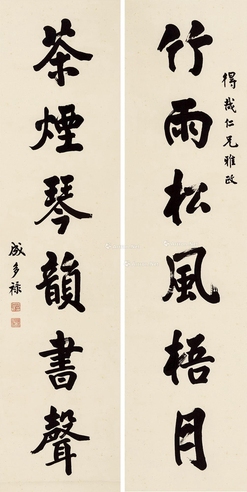 得哉仁兄雅政
竹雨松風梧月
茶煙琴韻書聲
成多祿